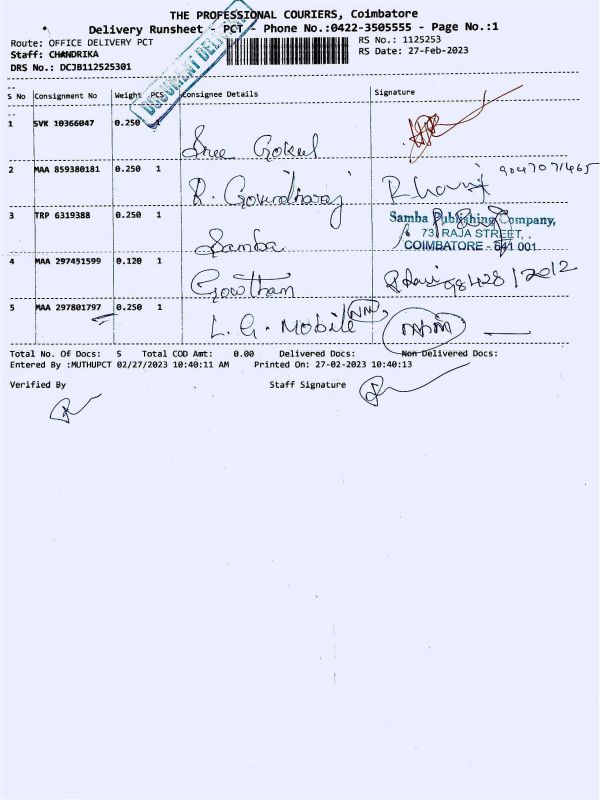 THE PROFESSIONAL COURIERS, Coimbatore
Delivery Runsheet - PCT - Phone No.:0422-3505555 - Page No.:1
Route: OFFICE DELIVERY PCT
RS No.: 1125253
Staff: CHANDRIKA
RS Date: 27-Feb-2023
DRS No.: DCJB112525301
DOCUMENT
S No Consignment No Weight PCS Consignee Details Signature
1 SVK 10366047 0.250 1 Sree Gokul
2 MAA 859380181 0.250 1 R. Govindharaj 9047071465
3 TRP 6319388 0.250 1 Samba
Samba Publishing Company,
73, RAJA STREET,
COIMBATORE - 641 001
4 MAA 297451599 0.120 1 Gowtham
5 MAA 297801797 0.250 1 L. G. Mobile
Total No. Of Docs: 5 Total COD Amt: 0.00 Delivered Docs: Non Delivered Docs:
Entered By :MUTHUPCT 02/27/2023 10:40:11 AM Printed On: 27-02-2023 10:40:13
Verified By Staff Signature